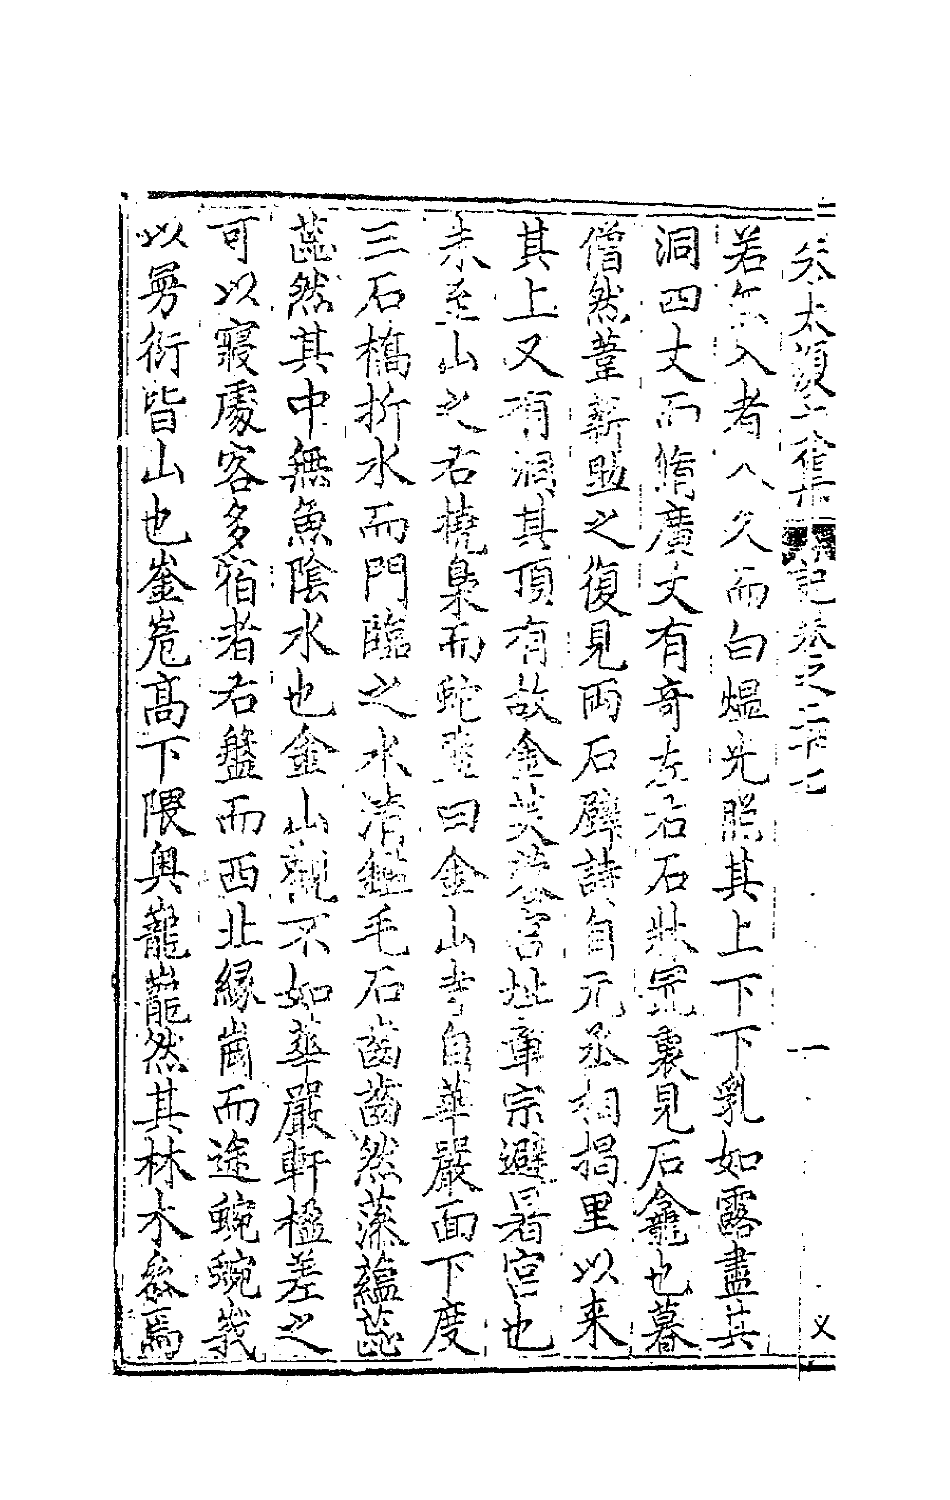 矣太須之全集 記卷之二十七 一 乂
若無入者入久而白煴光照其上下下乳如露盡其
洞四丈而脩廣丈有奇左右石狀完裏見石龕也暮
僧然葦薪助之復見兩石壁詩自元丞相揭里以来
其上又有洞其頂有故金芙蓉宮址章宗避暑宮也
未至山之右撓臬而蛇 曰金山寺自華嚴面下度
三石橋折水而門臨之水清鑑毛石齒齒然藻蘊蕊
蕊然其中無魚陰水也金山觀不如華嚴軒楹差之
可以寢處客多宿者右盤而西北縁崗而途蜿蜿峩
以曼衍皆山也崟嵬高下隈奥巃巃然其林木叅焉